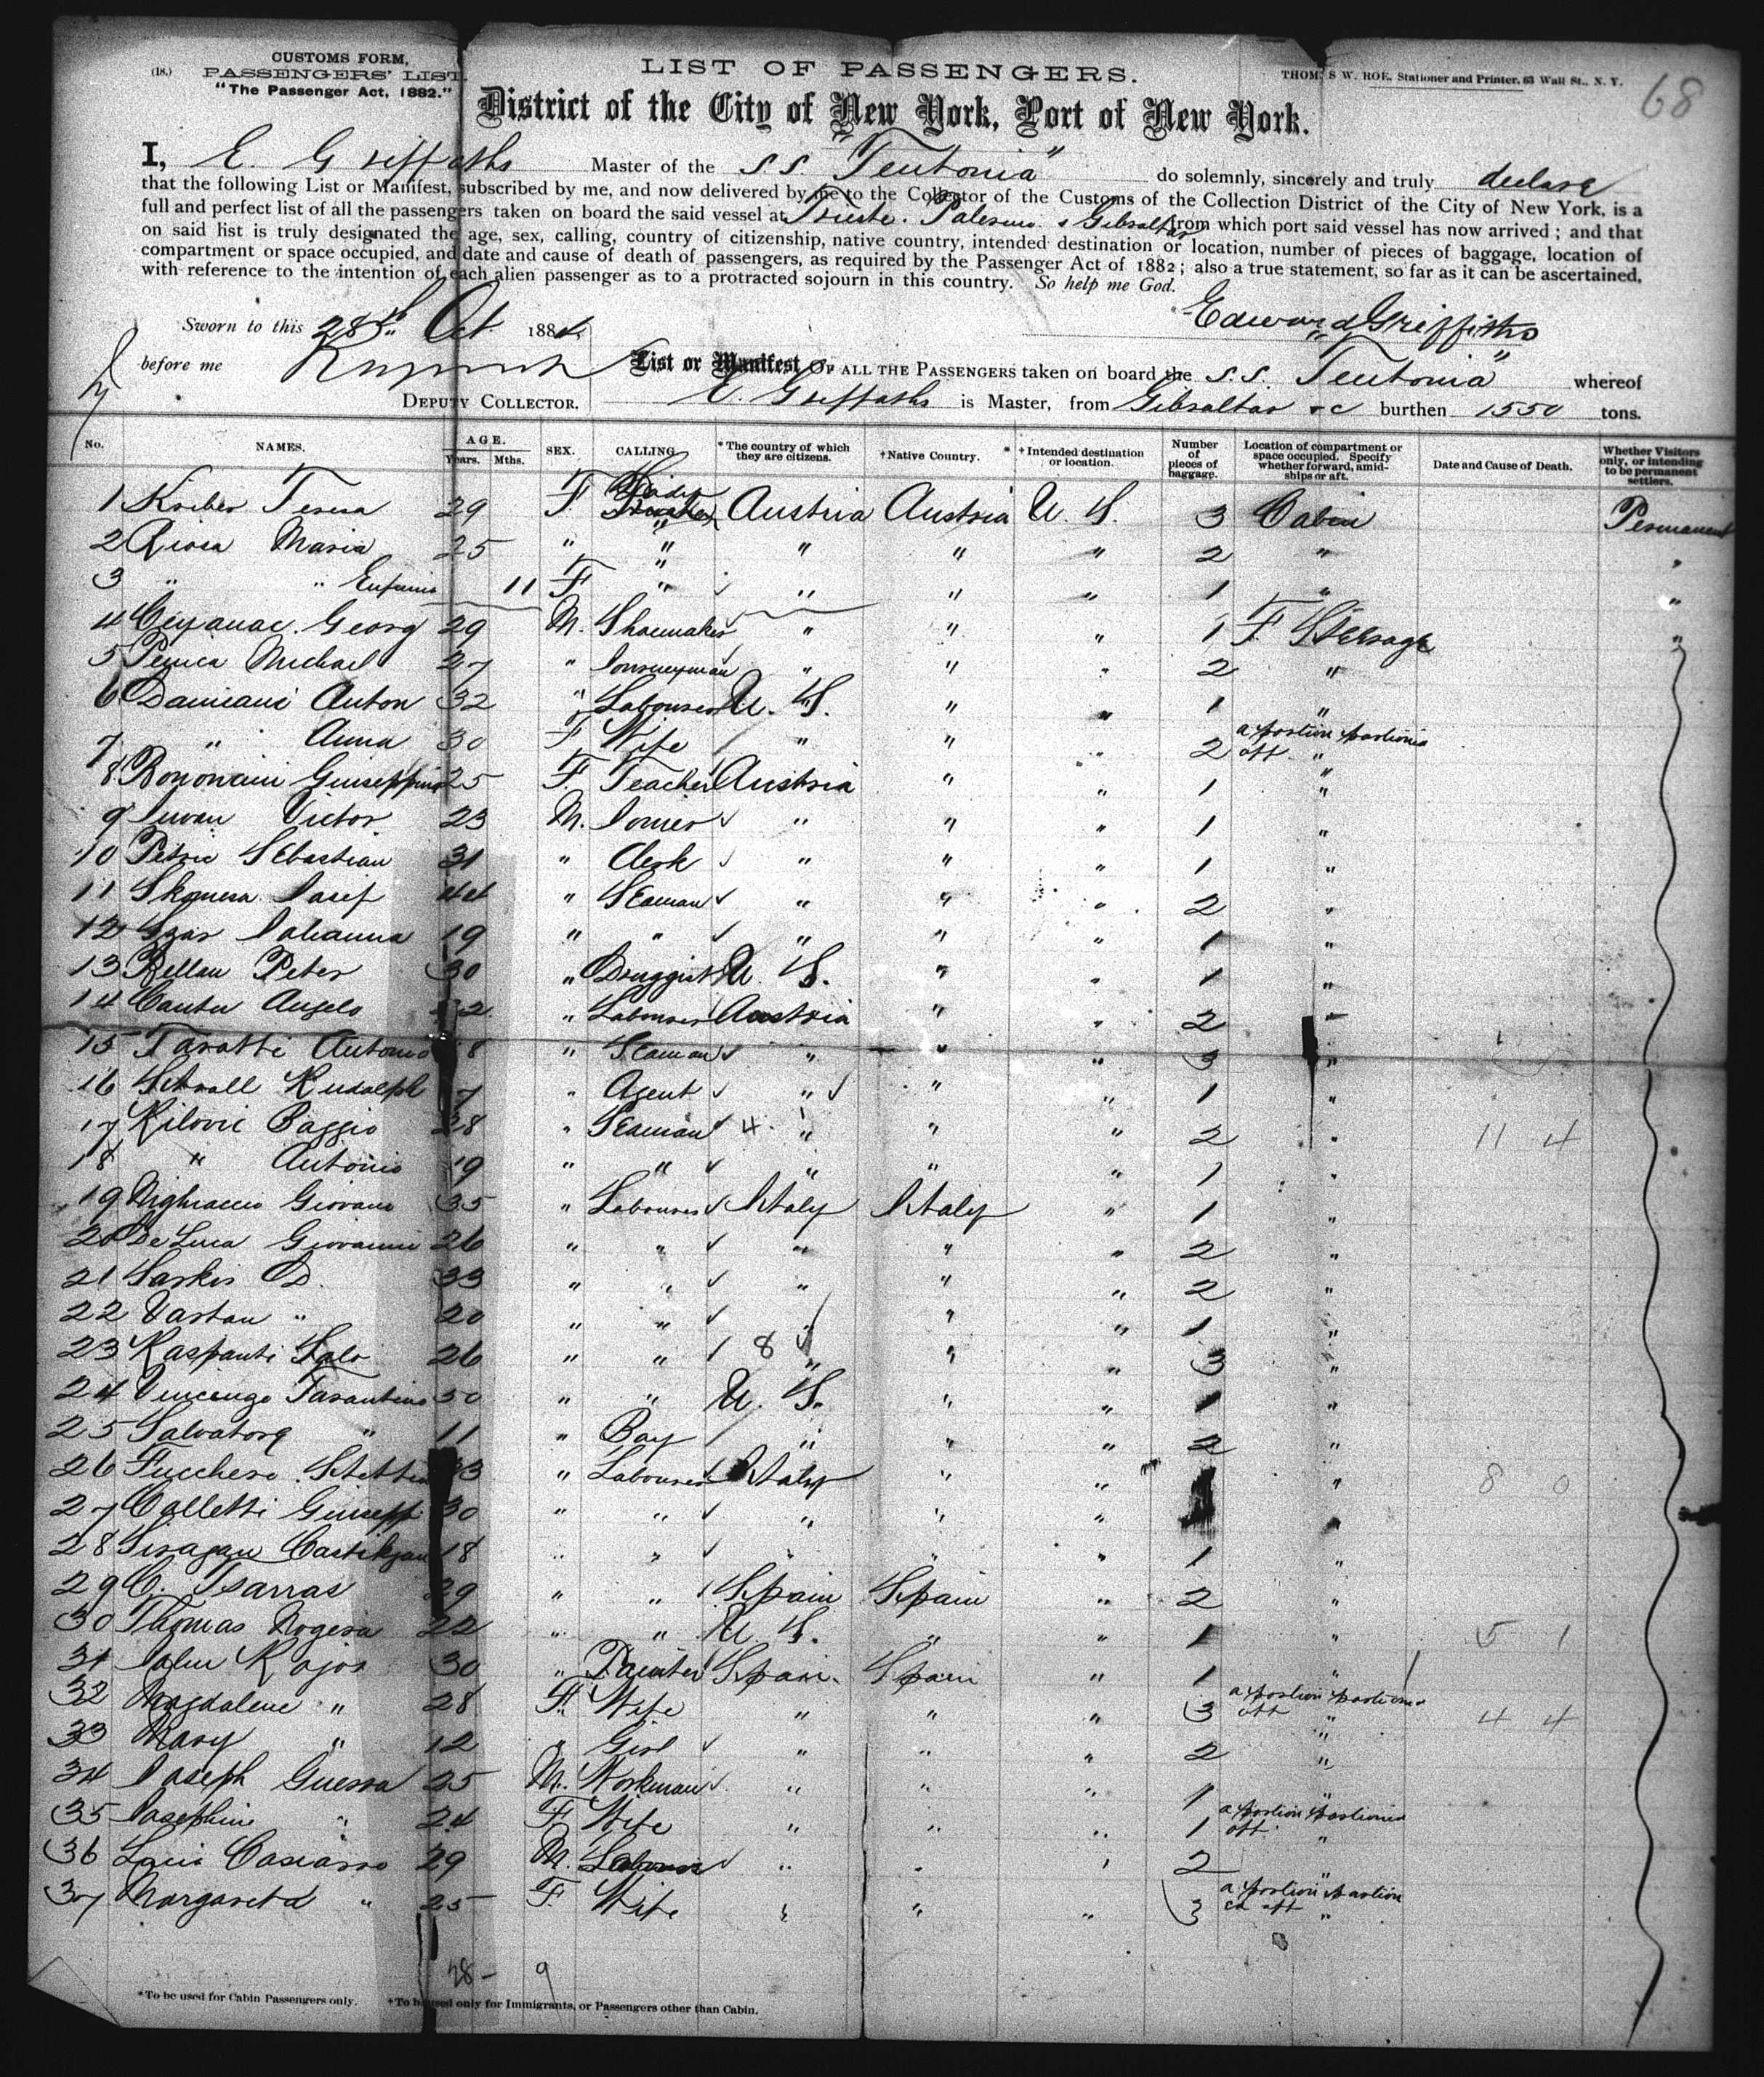 (18.)
CUSTOMS FORM,
PASSENGERS' LIST.
"The Passenger Act, 1882."
LIST OF PASSENGERS.
THOMAS W. ROE, Stationer and Printer, 63 Wall St., N. Y.
68
District of the City of New York, Port of New York.
I, E. Griffiths Master of the S.S. "Teutonia" do solemnly, sincerely and truly declare
that the following List or Manifest, subscribed by me, and now delivered by me to the Collector of the Customs of the Collection District of the City of New York, is a
full and perfect list of all the passengers taken on board the said vessel at Trieste. Palermo & Gibraltar from which port said vessel has now arrived; and that
on said list is truly designated the age, sex, calling, country of citizenship, native country, intended destination or location, number of pieces of baggage, location of
compartment or space occupied, and date and cause of death of passengers, as required by the Passenger Act of 1882; also a true statement, so far as it can be ascertained,
with reference to the intention of each alien passenger as to a protracted sojourn in this country. So help me God.
Sworn to this 28th Oct 1884
Edward Griffiths
before me
DEPUTY COLLECTOR.
List or Manifest OF ALL THE PASSENGERS taken on board the S.S. "Teutonia" whereof
E. Griffiths is Master, from Gibraltar &c burthen 1550 tons.
No. NAMES. AGE. Years. Mths. SEX. CALLING. * The country of which they are citizens. † Native Country. * † Intended destination or location. Number of pieces of baggage. Location of compartment or space occupied. Specify whether forward, amidships or aft. Date and Cause of Death. Whether Visitors only, or intending to be permanent settlers.
1 Teresa 29 F Austria Austria U. S. 3 Cabin Permanent
2 Maria 25 " " " " " 2 " "
3 " " 11 F " " " " 1 " "
4 Georg 29 M. Shoemaker " " " 1 F. Steerage "
5 Michael 27 " Journeyman " " " 2 "
6 Damiani Anton 32 " Labourer U. S. " " 1 "
7 " Anna 30 F Wife " " " 2 a portion partioned aft. "
8 Bononcini Giuseppina 25 F. Teacher Austria " " 1 "
9 Victor 23 M. Joiner " " " 1 "
10 Petric Sebastian 31 " Clerk " " " 1 "
11 Josef 44 " Seaman " " " 2 "
12 Johanna 19 " " " " " 1 "
13 Bellan Peter 30 " Druggist U. S. " " 1 "
14 Cantu Angelo " Labourer Austria " " 2 "
15 Taratti Antonio " Seaman " " " 3 "
16 Rudolph " Agent " " " 1 "
17 Baggio 28 " Seaman 4 " " " 2 " 11 4
18 " Antonio 19 " " " " " 1 "
19 Giovani 35 " Labourer Italy Italy " 1 "
20 De Luca Giovanni 26 " " " " " 2 "
21 Sarkis D. 33 " " " " " 2 "
22 Vartan " 20 " " " " " 1 "
23 Raspanti 26 " " 18 " " " 3 "
24 Vincenzo Tarantino 30 " " U. S. " " 1 "
25 Salvatore " 11 " Boy " " " 2 "
26 " Labourer Italy " " " 8 0
27 Colletti Giusepp 30 " " " " " "
28 18 " " " " " 1 "
29 C. Tsarras 29 " " Spain Spain " 2 "
30 Thomas Rogera 22 " " U. S. " " 1 " 5 1
31 John Rajos 30 " Painter Spain. Spain " 1 "
32 Magdalene " 28 F. Wife " " " 3 a portion partioned aft " 4 4
33 Mary " 12 " Girl " " " 2 "
34 Joseph Guerra 25 M. Workman " " " 1 "
35 Josephine " 24 F. Wife " " " 1 a portion partioned aft "
36 Louis 29 M. Labourer " " " 2 "
37 Margareta " 25 F. Wife " " " 3 a portion partioned aft "
28 - 9
*To be used for Cabin Passengers only. †To be used only for Immigrants, or Passengers other than Cabin.